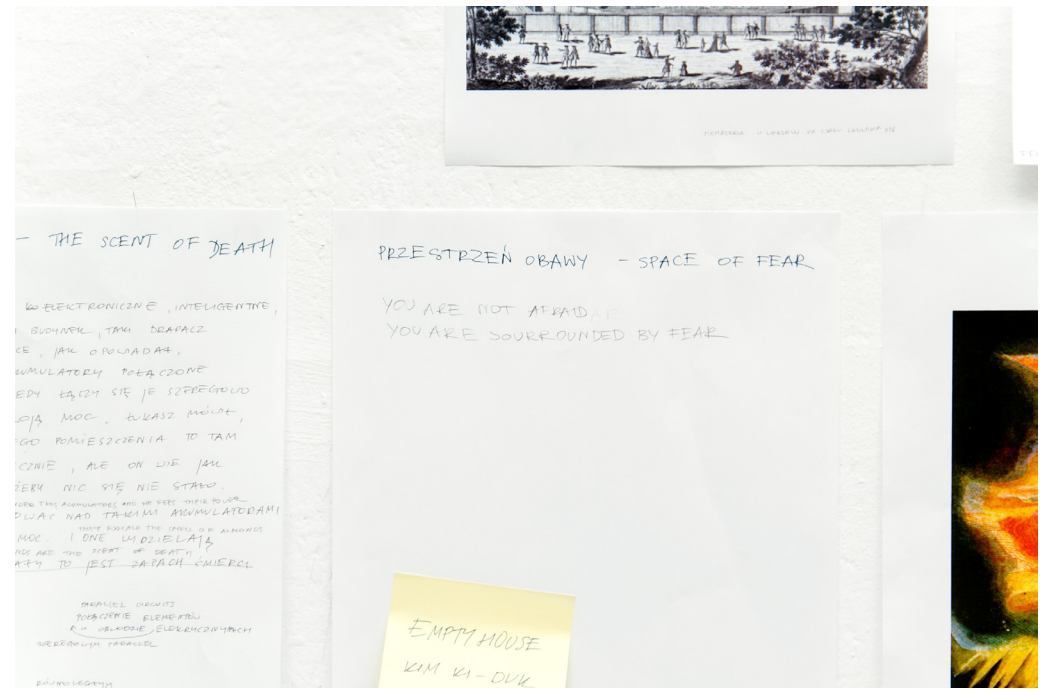 – THE SCENT OF DEATH
ELEKTRONICZNE, INTELIGENTNE,
BUDYNEK, TAKI DRAPACZ
CE, JAK OPOWIADAŁ,
UMULATORY POŁĄCZONE
EDY ŁĄCZY SIĘ JE SZEREGOWO
OJĄ MOC. ŁUKASZ MÓWIŁ,
EGO POMIESZCZENIA TO TAM
CZNIE, ALE ON WIE JAK
ŻEBY NIC SIĘ NIE STAŁO.
ACUMULATORS AND WE FEEL THEIR POWER
NAD TAKIMI AKUMULATORAMI
THE SMELL OF ALMONDS
MOC. I ONE WYDZIELAJĄ
ARE THE SCENT OF DEATH
TO JEST ZAPACH ŚMIERCI
PARALLEL CIRCUITS
POŁĄCZENIE ELEMENTÓW
W OBWODZIE ELEKRYCZNYMCH
SZEREGOWYM PARALLEL
RÓWNOLEGŁYM
PRZESTRZEŃ OBAWY – SPACE OF FEAR
YOU ARE NOT AFRAID
YOU ARE SOURROUNDED BY FEAR
EMPTY HOUSE
KIM KI-DUK